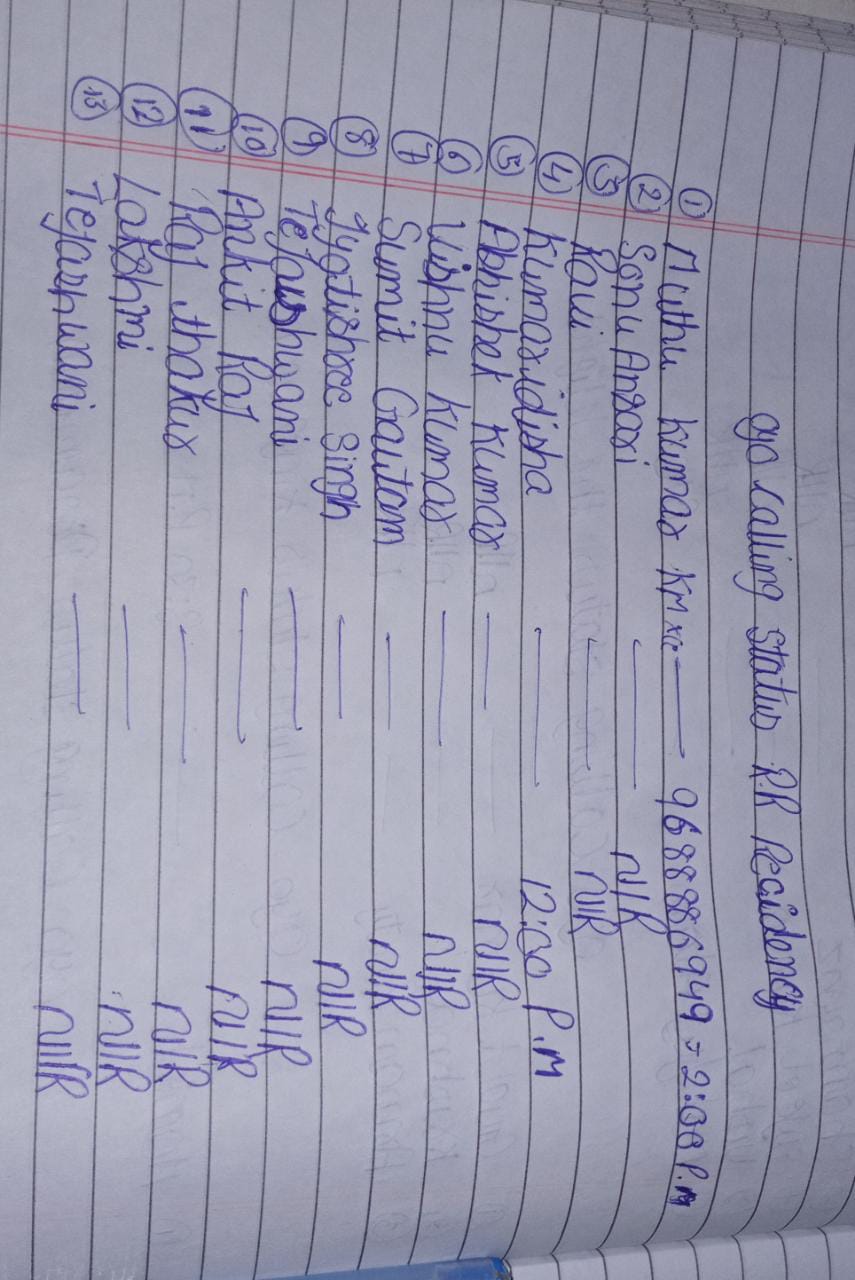 oyo calling Status R.R Recidency
① Muthu Kumar Km — 9688886949 = 2:00 P.M
② Sonu Ansari — N/R
③ Ravi — N/R
④ Kumaridisha — 12:00 P.M
⑤ Abhishek Kumar — N/R
⑥ Vishnu Kumar — N/R
⑦ Sumit Gautam — N/R
⑧ Jyotishree Singh — N/R
⑨ Tejashwani — N/R
⑩ Ankit Raj — N/R
⑪ Raj thakur — N/R
⑫ Lakshmi — N/R
⑬ Tejashwani — N/R